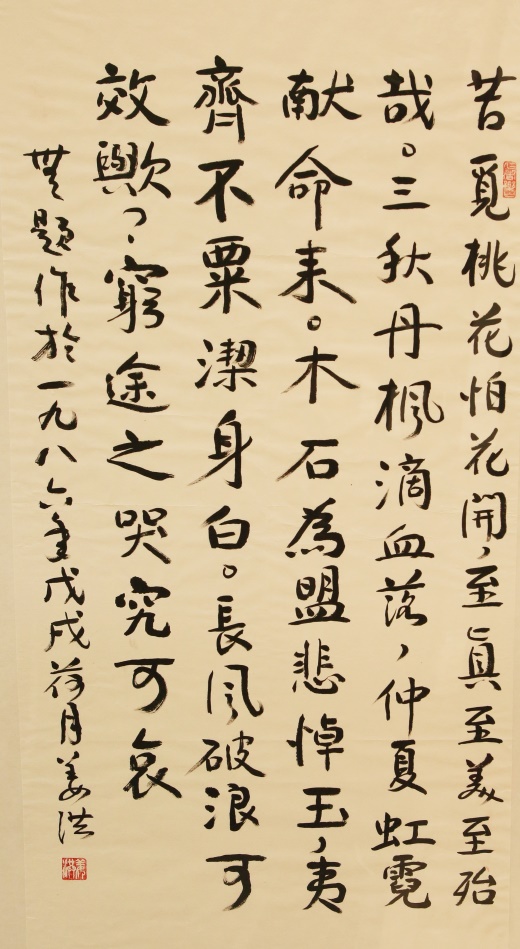 苦覓桃花怕花開，至眞至美至殆
哉。三秋丹楓滴血落，仲夏虹霓
献命来。木石為盟悲悼玉，夷
齊不粟潔身白。長风破浪可
效歟？窮途之哭究可哀
無題作於一九八六年戊戌荷月姜洪